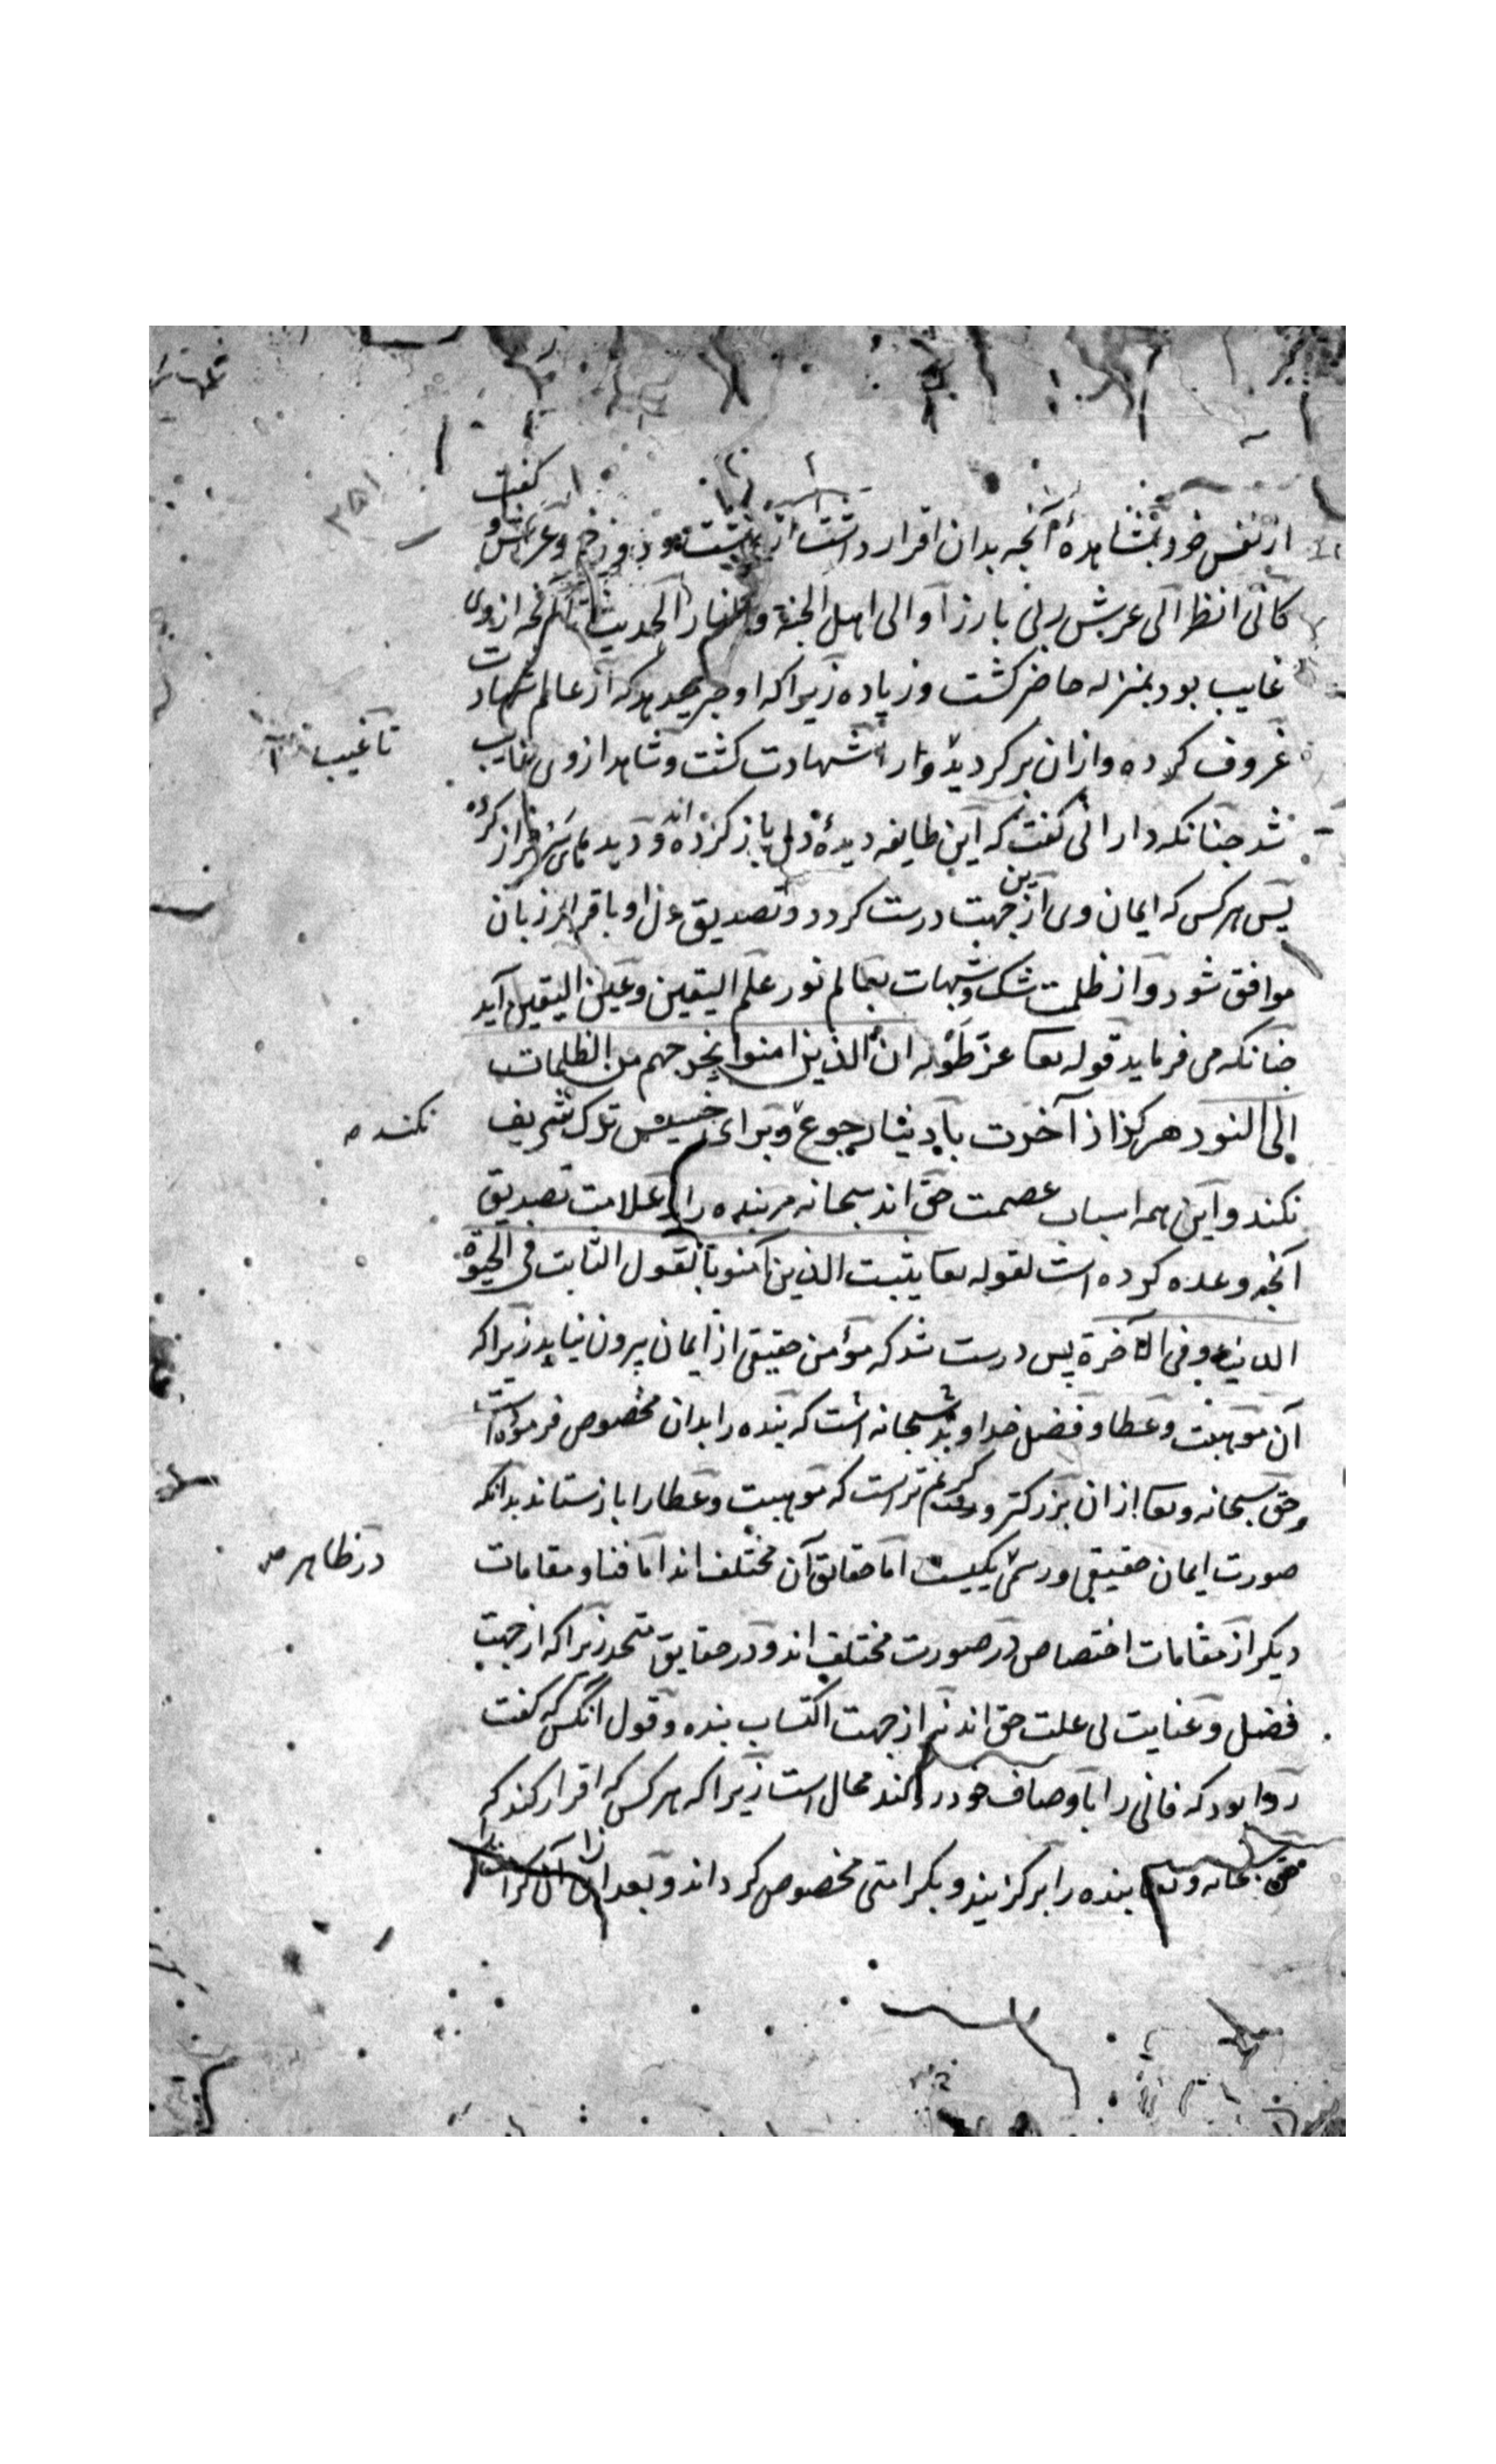 از نفس خود بمشاهدهٔ آنچه بدان اقرار داشت از بهشت و دوزخ و عرش و گفت
کانی انظر الی عرش ربی بارزا و الی اهل الجنة و النار الحدیث تا آنچه از وی
غایب بود بمنزله حاضر کشت و زیاده زیرا که او جر که از عالم شهادت
عزوف کرده و ازان برکردید و شهادت کشت و شاهد از وی غایب
شد چنانکه دارانی کفت که این طایفه دیدهٔ دل باز کرده‌اند و دیدهای سر فراز کرده
پس هر کس که ایمان وی ازین جهت درست کردد و تصدیق دل او باقرار زبان
موافق شود و از ظلمت شک و شبهات بعالم نور علم الیقین و عین الیقین آید
چنانکه می فرماید قوله تعا عز طوله ان الذین امنوا یخرجهم من الظلمات
الی النور هرکز از آخرت با دنیا رجوع و برای خسیس ترک شریف
نکند و این همه اسباب عصمت حق اند سبحانه مر بنده را و علامت تصدیق
آنچه وعده کرده است لقوله تعا یثبت الذین آمنوا بالقول الثابت فی الحیوة
الدنیا و فی الآخرة پس درست شد که مؤمن حقیقی از ایمان بیرون نیاید زیرا که
آن موهبت و عطا و فضل خداوند سبحانه است که بنده را بدان مخصوص فرموده است
و حق سبحانه و تعا ازان بزرکتر و کریم تر است که موهبت و عطا را باز ستاند بدانکه
صورت ایمان حقیقی و رسمی یکیست اما حقایق آن مختلف اند اما فنا و مقامات
دیکر از مقامات اختصاص در صورت مختلف اند و در حقایق متحد زیرا که از جهت
فضل و عنایت بی علت حق اند نه از جهت اکتساب بنده و قول آنکس که کفت
روا بود که فانی را باوصاف خود رد کند محال است زیرا که هر کس که اقرار کند که
حق سبحانه و تعا بنده را برکزیند و بکرامتی مخصوص کرداند و بعد ازان آن کرامت را
۳۵۱
تا غیب
نکند
در ظاهر